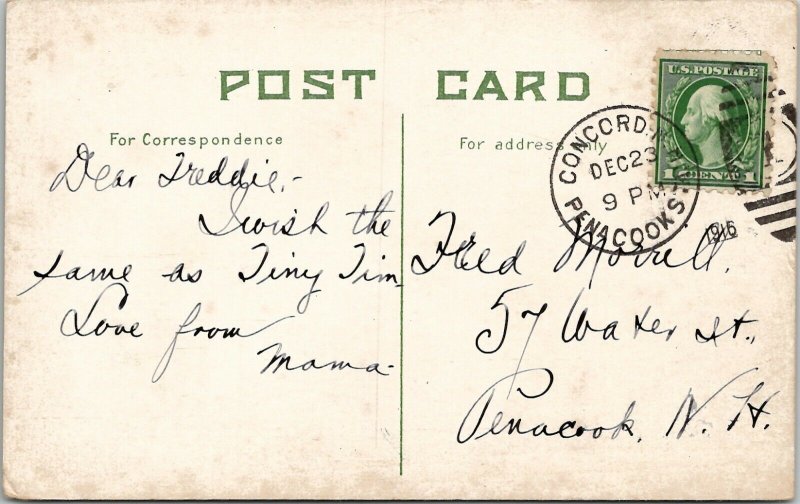 POST CARD
For Correspondence
For address only
U.S. POSTAGE
1 CENT 1
CONCORD, N.H.
DEC 23
9 PM
PENACOOK S
1916
Dear Freddie,-
I wish the
same as Tiny Tim
Love from
Mama-
Fred Morrill.
57 Water St.,
Penacook, N. H.